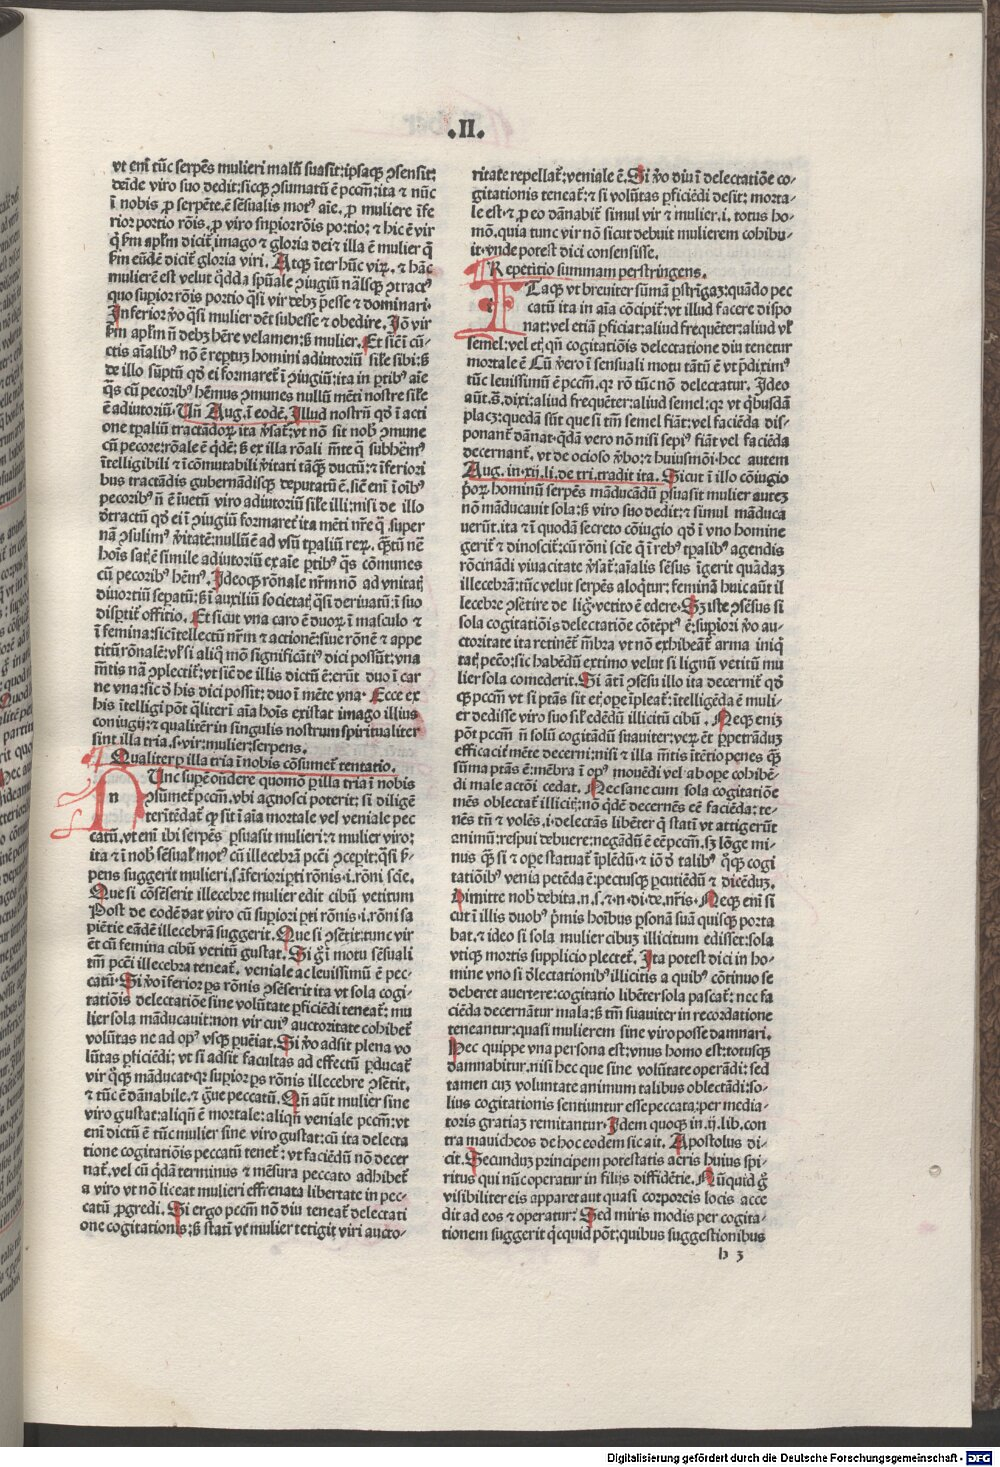 .II.
vt eni tūc serpēs mulieri malū suasit: ipsaqꝫ ꝯsensit:
deīde viro suo dedit: sicqꝫ ꝯsumatū ē pccm̄: ita ⁊ nūc
ī nobis ꝓ serpēte. ē sēsualis motꝰ aīe. ꝓ muliere īfe
rior portio rōis. ꝓ viro suꝑior rōis portio: ⁊ hic ē vir
q̄ ẜm apl̄m dicit᷑ imago ⁊ gloria dei ⁊ illa ē mulier q̄
ẜm eūdē dicit᷑ gloria viri. Atqꝫ īter hūc viꝝ. ⁊ hāc
mulierē est velut q̄dda spūale ꝯiugiū nālisqꝫ ꝯtractꝰ
quo suꝑior rōis portio q̄si vir debꝫ p̄esse ⁊ dominari.
Inferior v̄o q̄si mulier dēt subesse ⁊ obedire. Iō vir
ẜm apl̄m n̄ debꝫ hēre velamen: ꝫ mulier. Et siēi cū
ctis aīalibꝰ nō ē reptuꝫ homini adiutoriū sil̄e sibi: ꝫ
de illo sūptū qd̄ ei formaret᷑ ī ꝯiugiū: ita ī ꝑtibꝰ aīe
q̄s cū pecoribꝰ hēmus ꝯmunes nullū mēti nostre sil̄e
ē adiutoriū. Un̄ Aug. ī eodē. Illud nostrū qd̄ ī acti
one tꝑaliū tractādoꝝ ita v̄sat᷑: vt nō sit nobꝰ ꝯmune
cū pecore: rōale ē q̄dē: ꝫ ex illa rōali mēte q̄ subhēmꝰ
ītelligibili ⁊ īcōmutabili v̄itati tāqꝫ ductū: ⁊ īferiori
bus tractādis gubernādisqꝫ deputatū ē. siē enī ī oībꝰ
pecoribꝰ n̄ ē īuētū viro adiutoriū sil̄e illi: nisi de illo
dtractū qd̄ ei ī ꝯiugiū formaret᷑ ita mēti nr̄e q̄ super
nā ꝯsulimꝰ v̄itatē: nullū ē ad vsū tꝑaliū reꝝ. q̄tū nē
hoīs sat᷑ ē simile adiutoriū ex aīe ꝑtibꝰ q̄s cōmunes
cū pecoribꝰ hēmꝰ. Ideoqꝫ rōnale nr̄m nō ad vnitat᷑
diuortiū sepatū: ꝫ ī auxiliū societat᷑ q̄si deriuatū: ī suo
disꝑtit᷑ offitio. Et sicut vna caro ē duoꝝ ī masculo ⁊
ī femina: sic ītellectū nr̄m ⁊ actionē: siue rōnē ⁊ appe
titū rōnalē: vl̓ si aliq̄ mō significātiꝰ dici possūt: vna
mētis nā ꝯplectit᷑: vt siē de illis dictū ē: erūt duo ī car
ne vna: sic d̓ his dici possit: duo ī mēte vna. Ecce ex
his ītelligi pōt q̄liter ī aīa hoīs existat imago illius
coniugij: ⁊ qualiter in singulis nostrum spiritualiter
sint illa tria. s. vir: mulier: serpens.
Qualiter ꝑ illa tria ī nobis cōsumet᷑ tentatio.
Unc supē ondere quomō ꝑ illa tria ī nobis
ꝯsumet᷑ pccm̄. vbi agnosci poterit: si diligē
ter ītēdat᷑ qꝛ sit ī aīa mortale vel veniale pec
catū. vt enī ibi serpēs ꝑsuasit mulieri: ⁊ mulier viro:
ita ⁊ ī nobꝰ sēsual̓ motꝰ cū illecebrā pcci ꝯceꝑit: q̄si ẜ
pens suggerit mulieri. s. īferiori ꝑti rōnis. i. rōni sciē.
Que si cōsēserit illecebre mulier edit cibū vetitum
Post de eodē dat viro cū suꝑiori ꝑti rōnis. i. rōni sa
piētie eādē illecebrā suggerit. Que si ꝯsētit: tunc vir
ēt cū femina cibū vetitū gustat. Si gͥ ī motu sēsuali
tm̄ pcci illecebra teneat᷑. veniale ac leuissimū ē pec
catū. Si v̄o īferior ꝑs rōnis ꝯsēserit ita vt sola cogi
tatiōis delectatiōe sine volūtate ꝑficiēdi teneat᷑: mu
lier sola māducauit: non vir cuiꝰ auctoritate cohibet᷑
volūtas ne ad opꝰ vsqꝫ ꝑueniat. Si v̄o adsit plena vo
lūtas ꝑficiēdi: vt si adsit facultas ad effectū ꝑducat᷑
vir q̄qꝫ māducat. qꝛ suꝑior ꝑs rōnis illecebre ꝯsētit.
⁊ tūc ē dānabile. ⁊ gͣue peccatū. Qn̄ aūt mulier sine
viro gustat: aliqn̄ ē mortale: aliqn̄ veniale pccm̄: vt
enī dictū ē tūc mulier sine viro gustat: cū ita delecta
tione cogitatiōis peccatū tenet᷑: vt faciēdū nō decer
nat᷑. vel cū q̄dā terminus ⁊ mēsura peccato adhibet᷑
a viro vt nō liceat mulieri effrenata libertate in pec
catū ꝓgredi. Si ergo pccm̄ nō diu teneat᷑ delectati
one cogitationis: ꝫ statī vt mulier tetigit viri aucto-
ritate repellat᷑: veniale ē. Si v̄o diu ī delectatiōe co-
gitationis teneat᷑: ⁊ si volūtas ꝑficiēdi desit: morta-
le est. ⁊ ꝓ eo dānabit᷑ simul vir ⁊ mulier. i. totus ho-
mō. quia tunc vir nō sicut debuit mulierem cohibu-
it. vnde potest dici consensisse.
Repetitio summam perstringens.
Itaqꝫ vt breuiter sūmā ꝑstrīgaꝫ: quādo pec
catū ita in aīa cōcipit᷑: vt illud facere dispo
nat: vel etiā ꝑficiat: aliud frequēter: aliud vl̓
semel: vel et᷑ qn̄ cogitatiōis delectatione diu tenetur
mortale ē Cū v̄ero ī sensuali motu tātū ē vt p̄diximꝰ
tūc leuissimū ē pccm̄. qꝛ rō tūc nō delectatur. Ideo
aūt. S. dixi: aliud frequēter: aliud semel: qꝛ vt q̄busdā
placꝫ: quedā sūt que si tm̄ semel fiāt: vel faciēda dis-
ponant᷑ dānat. q̄dā vero nō nisi sepiꝰ fiāt vel faciēda
decernant᷑. vt de ocioso v̄bo: ⁊ huiusmōi. hec autem
Aug. in. xij. li. de tri. tradit ita. Sicut ī illo cōiugio
p̄orꝝ hominū serpēs māducādū ꝑsuasit mulier auteꝫ
nō māducauit sola: ꝫ viro suo dedit: ⁊ simul māduca
uerūt. ita ⁊ ī quodā secreto cōiugio qd̄ ī vno homine
gerit᷑ ⁊ dinoscit᷑: cū rōni sciē q̄ ī rebꝰ tꝑalibꝰ agendis
rōcinādi viuacitate v̄sat᷑: aīalis sēsus īgerit quādaꝫ
illecebrā: tūc velut serpēs aloqt̄ur: feminā huic aūt il
lecebre ꝯsētire de ligͦ vetito ē edere. Sꝫ iste ꝯsēsus si
sola cogitatiōis delectatiōe cōtēptꝰ ē: suꝑiori v̄o au-
ctoritate ita retinēt᷑ mēbra vt nō exhibeāt᷑ arma iniq̄
tat᷑ pecō: sic habēdū extimo velut si lignū vetitū mu
lier sola comederit. Si āt ī ꝯsēsu illo ita decernit᷑ qd̄
qꝫ pccm̄ vt si ptās sit et᷑ oꝑe īpleat᷑: ītelligēda ē muli-
er dedisse viro suo sil̓ edēdū illicitū cibū. Neqꝫ eniꝫ
pōt pccm̄ n̄ solū cogitādū suauiter: veꝝ ēt ꝑpetrāduꝫ
efficacit᷑ mēte decerni: nisi ⁊ illa mētis ītētio penes quā
sūma ptās ē: mēbra ī opꝰ mouēdi vel ab ope cohibē
di male actōi cedat. Nec sane cum sola cogitatiōe
mēs oblectat᷑ illicit᷑: nō qdē decernēs eē faciēda: te-
nēs tn̄ ⁊ volēs. i. delectās libēter q̄ statī vt attigerūt
animū: respui debuere: negādū ē eē pccm̄. sꝫ lōge mi-
nus q̄ꝫ si ⁊ oꝑe statuat᷑ īplēdū. ⁊ iō d̓ talibꝰ q̄qꝫ cogi
tatiōibꝰ venia petēda ē: pectusqꝫ ꝑcutiēdū ⁊ dicēduꝫ.
Dimitte nobꝰ debita. n. s. ⁊. n. di. de. nr̄is. Neqꝫ enī si
cut ī illis duobꝰ p̄mis hoībus ꝑsonā suā quisqꝫ porta
bat. ⁊ ideo si sola mulier cibuꝫ illicitum edisset: sola
vtiqꝫ mortis supplicio plectet᷑. Ita potest dici in ho-
mine vno si d̓lectationibꝰ illicitis a quibꝰ cōtinuo se
deberet auertere: cogitatio libēter sola pascat᷑: nec fa
ciēda decernātur mala: ꝫ tm̄ suauiter in recordatione
teneantur: quasi mulierem sine viro posse damnari.
Nec quippe vna persona est: vnus homo est: totusqꝫ
damnabitur. nisi hec que sine volūtate operādi: sed
tamen cuꝫ voluntate animum talibus oblectādi: so-
lius cogitationis sentiuntur esse peccata: per media-
toris gratiaꝫ remitantur. Idem quoqꝫ in. ij. lib. con
tra mauicheos de hoc eodem sic ait. Apostolus di-
cit. Secunduꝫ principem potestatis aeris huius spi-
ritus qui nūc operatur in filijs diffidētie. Nūquid gͦ
visibiliter eis apparet aut quasi corporeis locis acce
dit ad eos ⁊ operatur. Sed miris modis per cogita-
tionem suggerit q̄cquid pōt: quibus suggestionibus
b 3
Digitalisierung gefördert durch die Deutsche Forschungsgemeinschaft - DFG